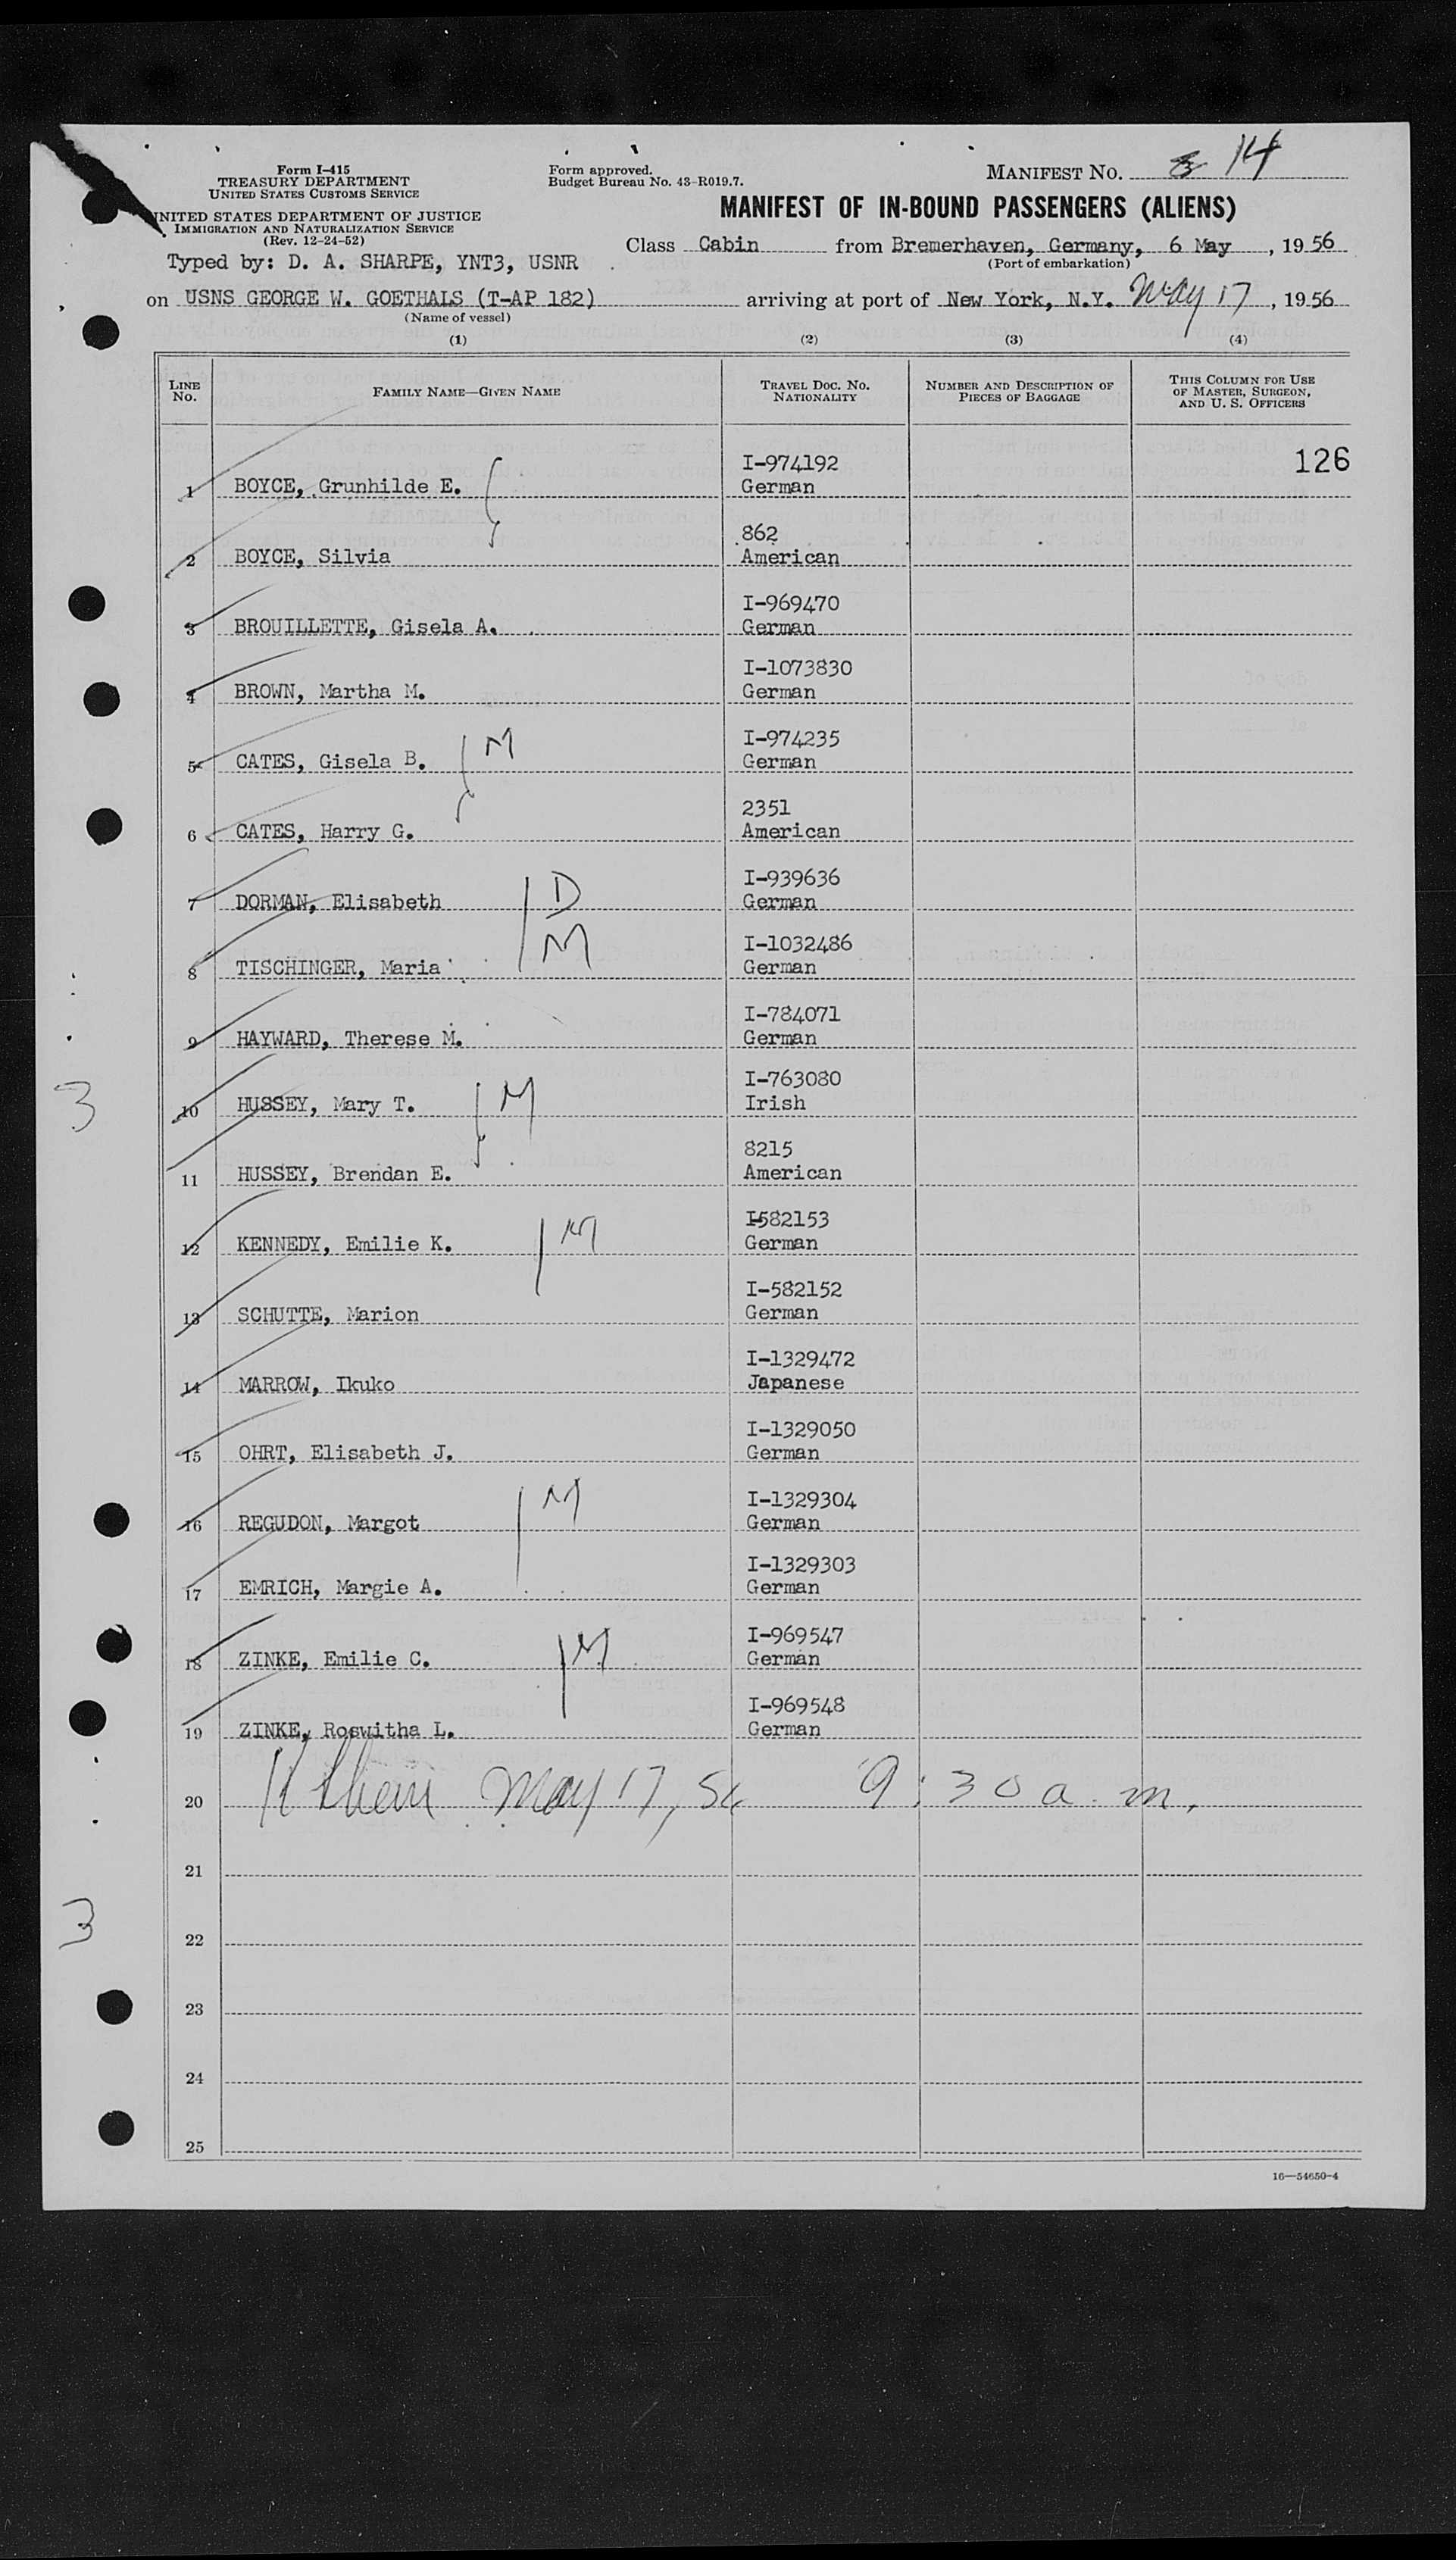 Form I-415
TREASURY DEPARTMENT
UNITED STATES CUSTOMS SERVICE
Form approved.
Budget Bureau No. 43-R019.7.
MANIFEST No. 14
UNITED STATES DEPARTMENT OF JUSTICE
IMMIGRATION AND NATURALIZATION SERVICE
(Rev. 12-24-52)
MANIFEST OF IN-BOUND PASSENGERS (ALIENS)
Class Cabin from Bremerhaven, Germany, 6 May, 1956
(Port of embarkation)
Typed by: D. A. SHARPE, YNT3, USNR
on USNS GEORGE W. GOETHALS (T-AP 182) arriving at port of New York, N.Y. May 17, 1956
(Name of vessel)
(1) (2) (3) (4)
LINE No. FAMILY NAME—GIVEN NAME TRAVEL DOC. No. NATIONALITY NUMBER AND DESCRIPTION OF PIECES OF BAGGAGE THIS COLUMN FOR USE OF MASTER, SURGEON, AND U. S. OFFICERS
I-974192 126
1 BOYCE, Grunhilde E. German
862
2 BOYCE, Silvia American
I-969470
3 BROUILLETTE, Gisela A. German
I-1073830
4 BROWN, Martha M. German
M I-974235
5 CATES, Gisela B. German
2351
6 CATES, Harry G. American
D I-939636
7 DORMAN, Elisabeth German
M I-1032486
8 TISCHINGER, Maria German
I-784071
9 HAYWARD, Therese M. German
M I-763080
10 HUSSEY, Mary T. Irish
8215
11 HUSSEY, Brendan E. American
M I-582153
12 KENNEDY, Emilie K. German
I-582152
13 SCHUTTE, Marion German
I-1329472
14 MARROW, Ikuko Japanese
I-1329050
15 OHRT, Elisabeth J. German
M I-1329304
16 REGUDON, Margot German
I-1329303
17 EMRICH, Margie A. German
M I-969547
18 ZINKE, Emilie C. German
I-969548
19 ZINKE, Roswitha L. German
20 May 17, 56 9:30 a.m.
21
22
23
24
25
16—54650-4
3
3